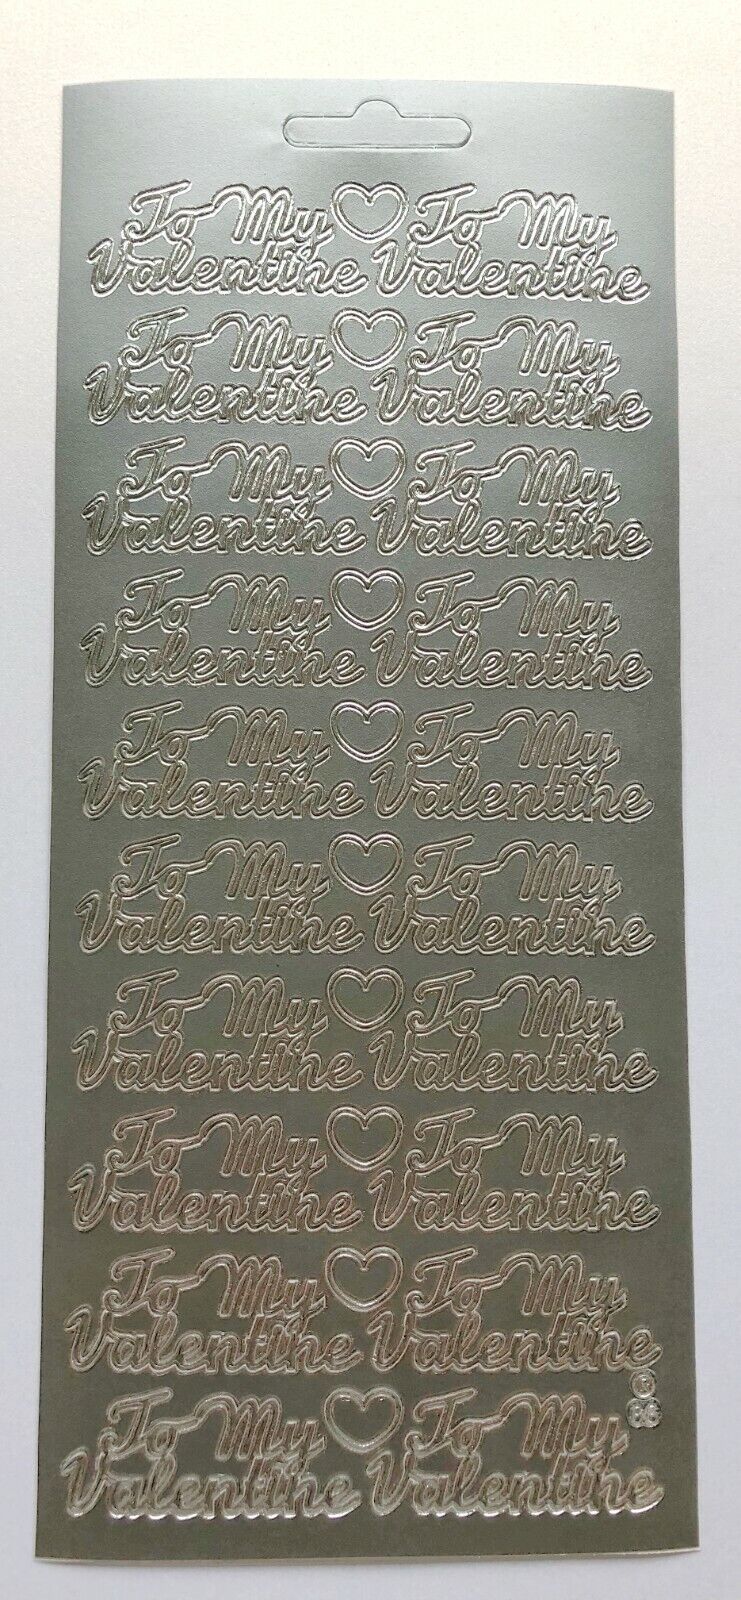 To My To My
Valentine Valentine
To My To My
Valentine Valentine
To My To My
Valentine Valentine
To My To My
Valentine Valentine
To My To My
Valentine Valentine
To My To My
Valentine Valentine
To My To My
Valentine Valentine
To My To My
Valentine Valentine
To My To My
Valentine Valentine
To My To My
Valentine Valentine